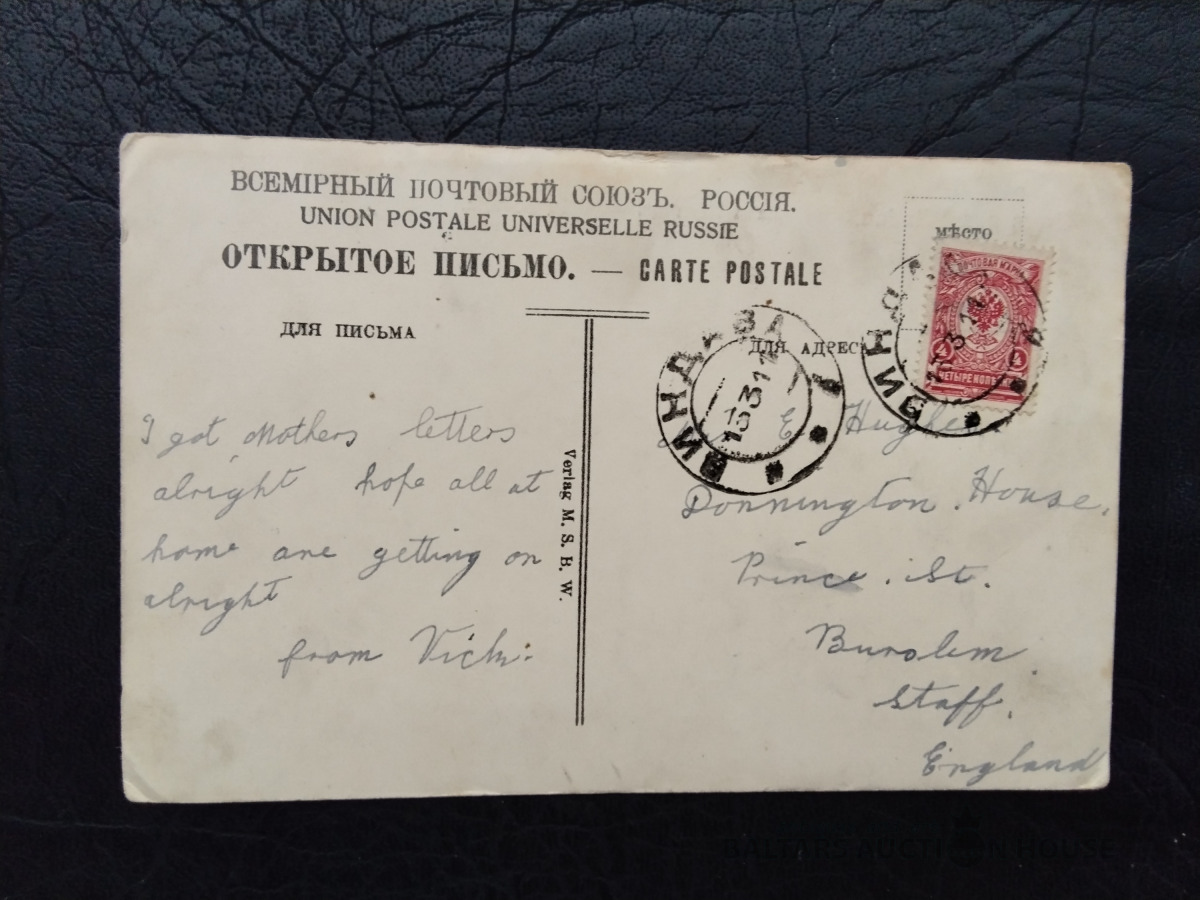 ВСЕМІРНЫЙ ПОЧТОВЫЙ СОЮЗЪ. РОССІЯ.
UNION POSTALE UNIVERSELLE RUSSIE
ОТКРЫТОЕ ПИСЬМО. — CARTE POSTALE
мѣсто
ПОЧТОВАЯ МАРКА
4
ЧЕТЫРЕ КОП
ДЛЯ ПИСЬМА
ДЛЯ АДРЕС
ВИНДАВА
13 3 11
ВИНДА
13 3 1
I got Mothers letters
alright hope all at
home are getting on
alright
from Vick.
Verlag M. S. B. W.
E Hughes
Donnington House.
Prince. St.
Burslem
Staff.
England
BALTARS AUCTION HOUSE